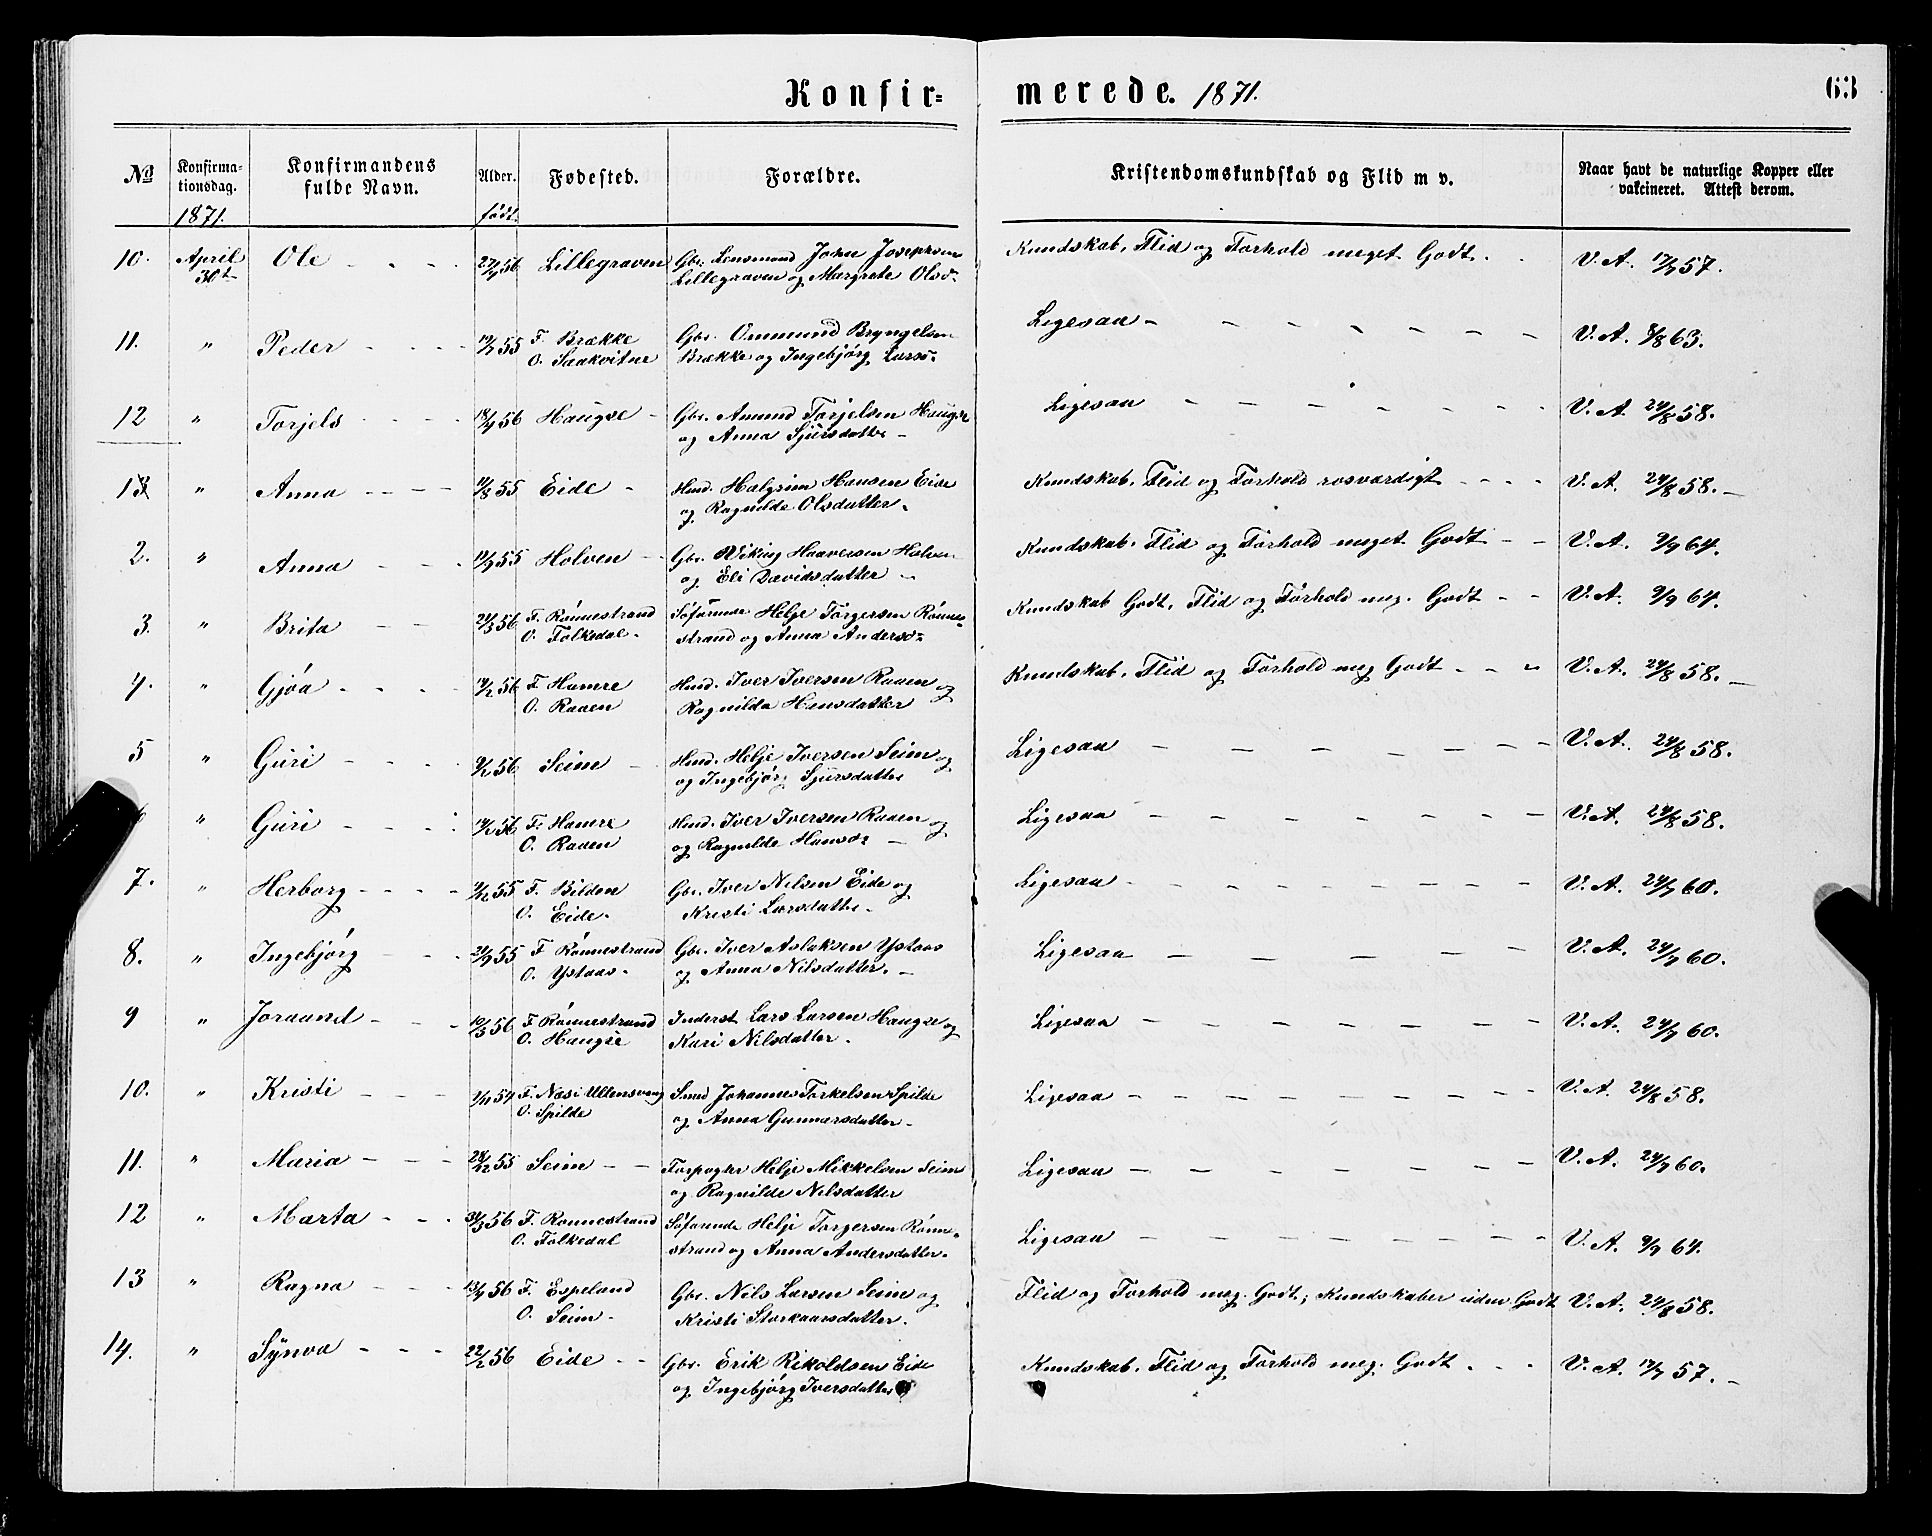 Konfir=
merede. 1871.
63
No
Konfirma-
tionsdag.
1871.
Konfirmandens
fulde Navn.
Alder.
födt.
Fødested.
Forældre.
Kristendomskundskab og Flid m v.
Naar havt de naturlige Kopper eller
vakcineret. Attest derom.
10. April 30t Ole 56 Lillegraven Gbr. Lensmand John Josephsen
Lillegraven og Margrete Olsd.
Kundskab, Flid og Forhold meget Godt. V. A. 17/7 57.
11. " Peder 55 F. Brække
O. Saakvitne
Gbr. Ommund Bryngelsen
Brække og Ingebjörg Larsd.
Ligesaa V. A. 8/8 63.
12 " Torjels 56 Haugse Gbr. Amund Torjelsen Haugse
og Anna Sjursdatter
Ligesaa V. A. 24/8 58.
1 " Anna 11/8 55 Eide Hmd. Halgrim Hansen Eide
og Ragnilde Olsdatter.
Kundskab, Flid og Forhold rosværdigt V. A. 24/8 58.
2. " Anna 55 Holven Gbr. Viking Haaversen Holven
og Eli Davidsdatter
Kundskab, Flid og Forhold meget Godt V. A. 9/9 64.
3. " Brita 56 F. Rönnestrand
O. Folkedal.
Söfarende Helje Torgersen Rönne=
strand og Anna Andersd=
Kundskab Godt, Flid og Forhold meg. Godt V. A. 9/9 64.
4. " Gjöa 56 F. Hamre
O. Raaen
Hmd. Iver Iversen Raaen og
Ragnilda Hansdatter
Kundskab, Flid og Forhold meg Godt V. A. 24/8 58.
5 " Guri 56 Seim Hmd. Helje Iversen Seim og
og Ingebjörg Sjursdatter
Ligesaa V. A. 24/8 58.
" Guri 56 F. Hamre
O. Raaen
Hmd. Iver Iversen Raaen og
og Ragnilde Hansd=
Ligesaa V. A. 24/8 58.
7. " Herborg 55 F. Bilden
O. Eide.
Gbr. Iver Nilsen Eide og
Kristi Larsdatter.
Ligesaa V. A. 24/7 60.
8. " Ingebjörg 21/9 55 F. Rönnestrand
O. Ystaas.
Gbr. Iver Aslaksen Ystaas
og Anna Nilsdatter.
Ligesaa V. A. 24/7 60.
9 " Joraand 10/3 56 F. Rönnestrand
O. Haugse
Inderst Lars Larsen Haugse og
Kari Nilsdatter.
Ligesaa V. A. 24/7 60.
10. " Kristi 54 F. Næs i Ullensvang
O. Spilde
Smed Johannes Torkelsen Spilde
og Anna Gunnarsdatter
Ligesaa V. A. 24/8 58.
11. " Maria 28/12 55 Seim Forpagter Helje Mikkelsen Seim
og Ragnilde Nilsdatter
Ligesaa V. A. 24/7 60.
12 " Marta 56 F. Rönnestrand
O. Folkedal
Söfarende Helje Torgersen Rönne=
strand og Anna Andersdatter.
Ligesaa V. A. 9/9 64.
13 " Ragna 56 F. Espeland
O. Seim
Gbr. Nils Larsen Seim og
Kristi Storkaarsdatter.
Flid og Forhold meg. Godt; Kundskaber uden Godt V. A. 24/8 58.
14. " Synva 22/2 56 Eide Gbr. Erik Rikoldsen Eide
og Ingebjörg Iversdatter
Kundskab, Flid og Forhold meg. Godt V. A. 17/7 57.